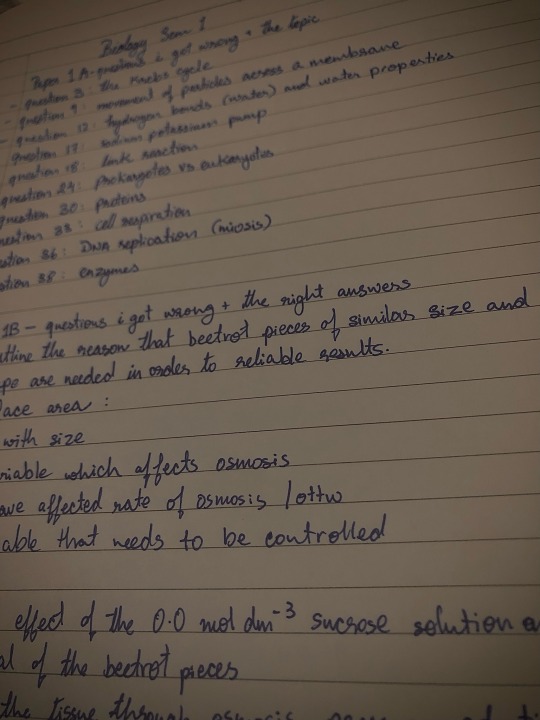 Biology Sem 1
Paper 1A - questions i got wrong + the topic
- question 3: the Krebs cycle
- question 9: movement of particles across a membrane
- question 12: hydrogen bonds (water) and water properties
question 17: sodium potassium pump
question 18: link reaction
question 24: prokaryotes vs eukaryotes
question 30: proteins
estion 33: cell respiration
stion 36: DNA replication (miosis)
stion 38: enzymes
1B - questions i got wrong + the right answers
tline the reason that beetrot pieces of similar size and
pe are needed in order to reliable results.
face area :
with size
riable which affects osmosis
ave affected rate of osmosis /ottw
able that needs to be controlled
effect of the 0.0 mol dm⁻³ sucrose solution
al of the beetrot pieces
the tissue through osmosis